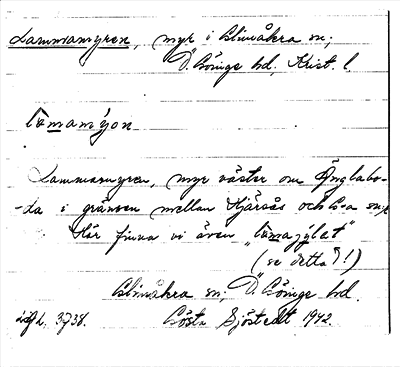 Lammamyren, myr i Glimåkra sn;
Ö. Göinge hd, Krist. l.
lamamýon
Lammamyren, myr väster om Änglabo-
-da i gränsen mellan Hjärsås och G-a sn;
Här finna vi även "lamagýlat"
(se detta!)
Glimåkra sn; Ö. Göinge hd.
Gösta Sjöstedt 1942.